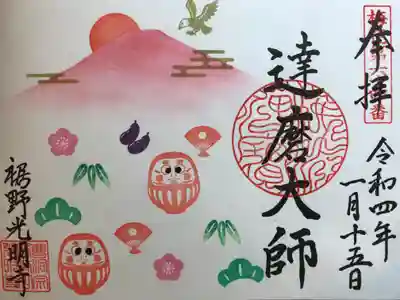 奉拝
令和四年
一月十五日
達磨大師
裾野光明寺